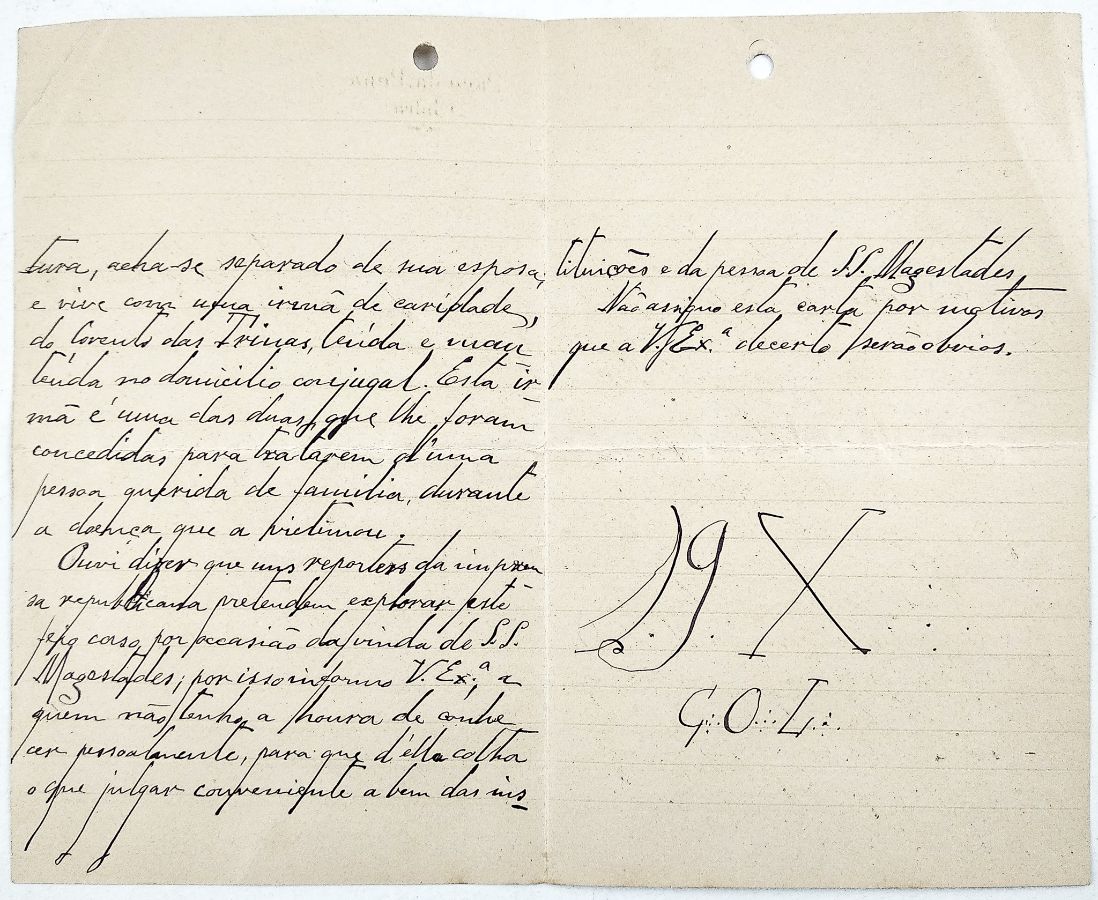 tura, acha-se separado de sua esposa,
e vive com uma irmã de caridade,
do Convento das Trinas, teúda e man
teúda no domicilio conjugal. Esta ir
mã é uma das duas, que lhe foram
concedidas para tratarem d'uma
pessoa querida de familia, durante
a doença que a victimou.
Ouvi dizer que uns reporters da impren
sa republicana pretendem explorar este
feio caso, por occasião da vinda de S.S.
Magestades; por isso informo V. Ex.ª, a
quem não tenho a honra de conhe
cer pessoalmente, para que d'ella colha
o que julgar conveniente a bem das ins
tituições e da pessoa de S.S. Magestades.
Não assigno esta carta por motivos
que a V. Ex.ª decerto serão obvios.
X
G∴O∴L∴